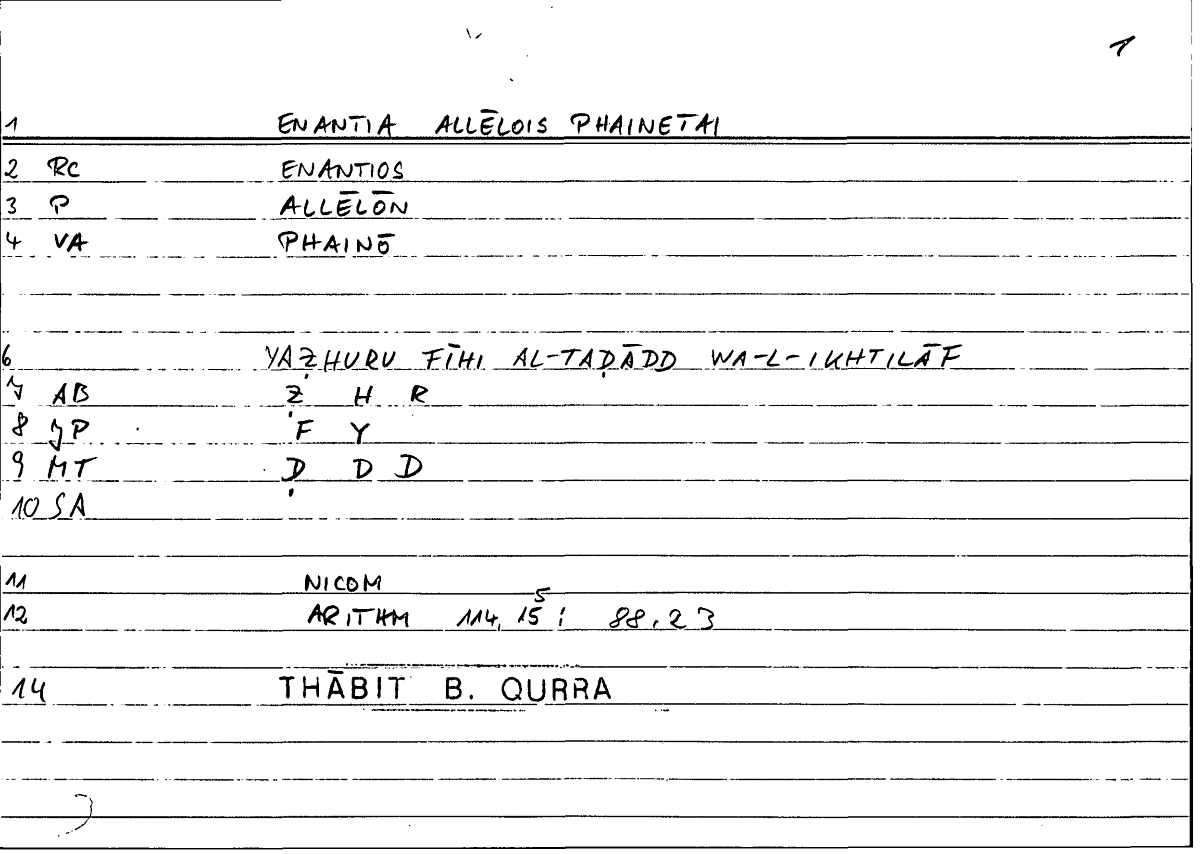 1
1 ENANTIA ALLĒLOIS PHAINETAI
2 RC ENANTIOS
3 P ALLĒLŌN
4 VA PHAINŌ
6 YAẒHURU FĪHI AL-TAḌĀDD WA-L-IKHTILĀF
7 AB Ẓ H R
8 JP F Y
9 MT Ḍ D D
10 SA
11 NICOM
12 ARITHM 114, 15 5 ; 88.23
14 THĀBIT B. QURRA